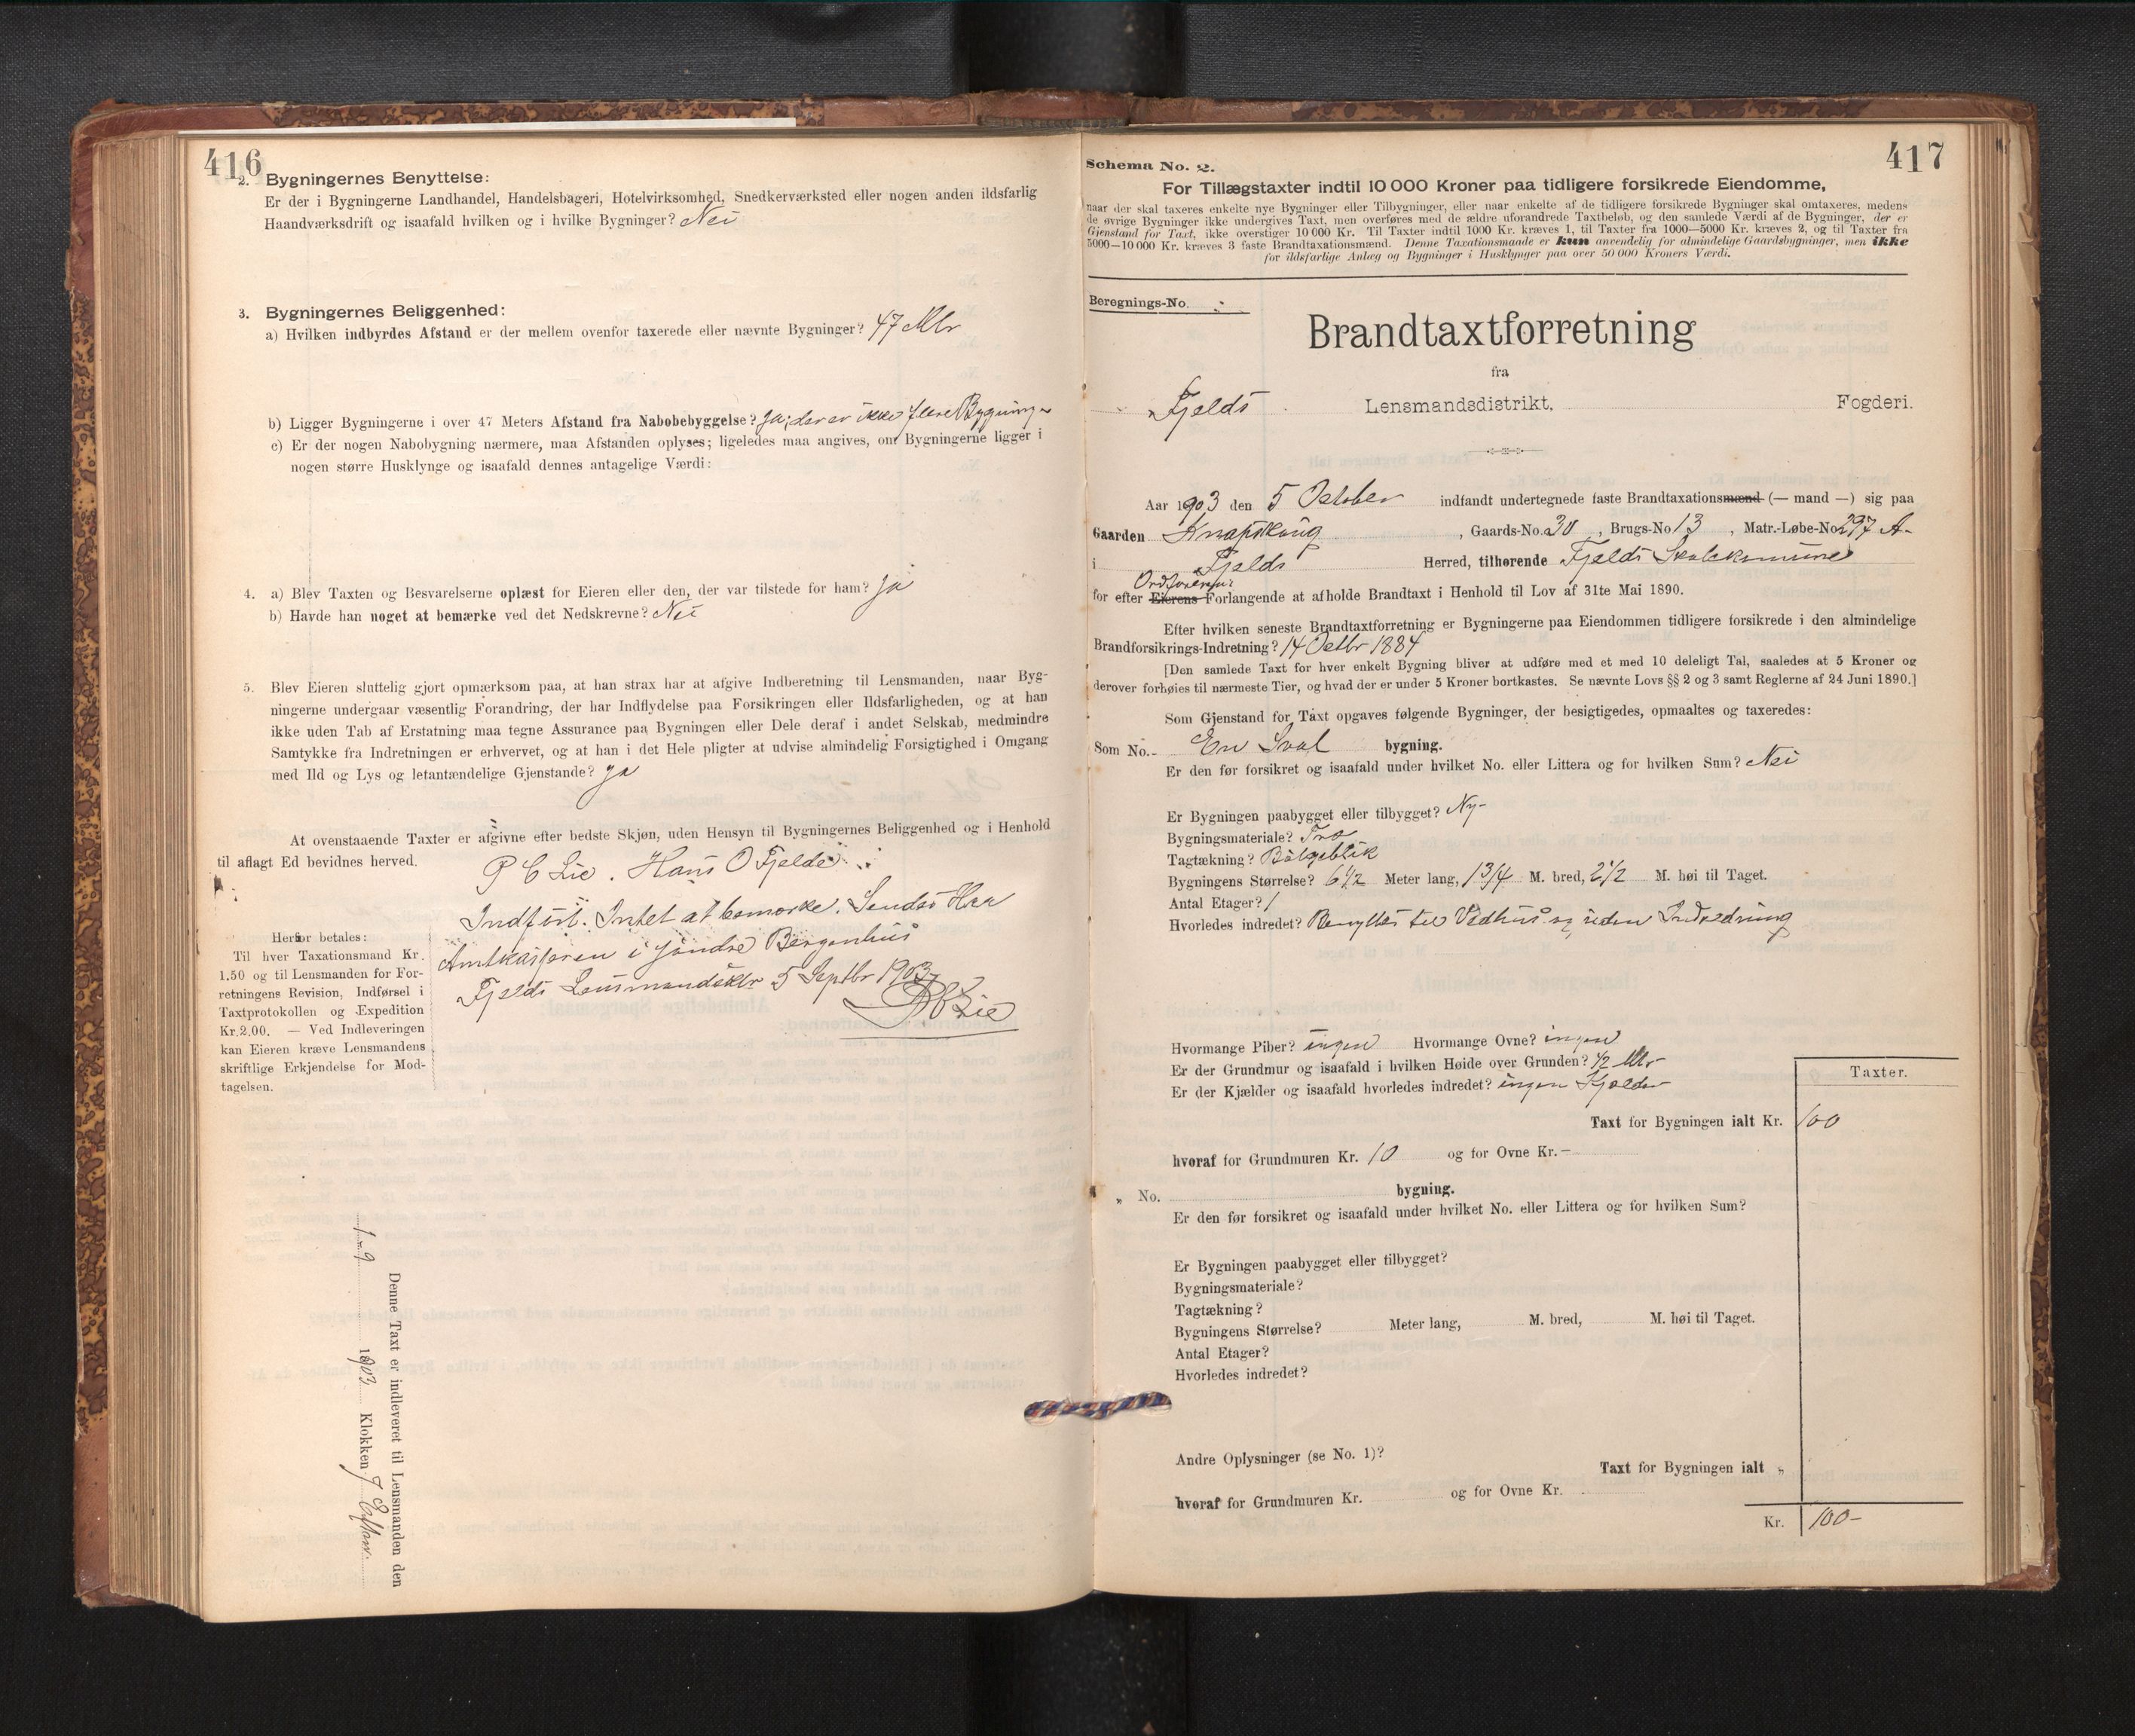 416
2. Bygningernes Benyttelse:
Er der i Bygningerne Landhandel, Handelsbageri, Hotelvirksomhed, Snedkerværksted eller nogen anden ildsfarlig
Haandværksdrift og isaafald hvilken og i hvilke Bygninger? Nei
3. Bygningernes Beliggenhed:
a) Hvilken indbyrdes Afstand er der mellem ovenfor taxerede eller nævnte Bygninger? 47 Mtr
b) Ligger Bygningerne i over 47 Meters Afstand fra Nabobebyggelse? Ja, der er ikke flere Bygninger
c) Er der nogen Nabobygning nærmere, maa Afstanden oplyses; ligeledes maa angives, om Bygningerne ligger i
nogen større Husklynge og isaafald dennes antagelige Værdi:
4. a) Blev Taxten og Besvarelserne oplæst for Eieren eller den, der var tilstede for ham? Ja
b) Havde han noget at bemærke ved det Nedskrevne? Nei
5. Blev Eieren sluttelig gjort opmærksom paa, at han strax har at afgive Indberetning til Lensmanden, naar Byg-
ningerne undergaar væsentlig Forandring, der har Indflydelse paa Forsikringen eller Ildsfarligheden, og at han
ikke uden Tab af Erstatning maa tegne Assurance paa Bygningen eller Dele deraf i andet Selskab, medmindre
Samtykke fra Indretningen er erhvervet, og at han i det Hele pligter at udvise almindelig Forsigtighed i Omgang
med Ild og Lys og letantændelige Gjenstande? Ja
At ovenstaaende Taxter er afgivne efter bedste Skjøn, uden Hensyn til Bygningernes Beliggenhed og i Henhold
til aflagt Ed bevidnes herved.
P C Lie. Hans O Fjelde
Indført. Intet at bemærke. Sendes Hr
Amtkasseren i Søndre Bergenhus
Fjelds Lensmandsktr 5 Septbr 1903
P C Lie
Herfor betales:
Til hver Taxationsmand Kr.
1.50 og til Lensmanden for For-
retningens Revision, Indførsel i
Taxtprotokollen og Expedition
Kr. 2.00. — Ved Indleveringen
kan Eieren kræve Lensmandens
skriftlige Erkjendelse for Mod-
tagelsen.
Denne Taxt er indleveret til Lensmanden den
1-9 1903 Klokken 7 Efterm.
417
Schema No. 2.
For Tillægstaxter indtil 10 000 Kroner paa tidligere forsikrede Eiendomme,
naar der skal taxeres enkelte nye Bygninger eller Tilbygninger, eller naar enkelte af de tidligere forsikrede Bygninger skal omtaxeres, medens
de øvrige Bygninger ikke undergives Taxt, men overføres med de ældre uforandrede Taxtbeløb, og den samlede Værdi af de Bygninger, der er
Gjenstand for Taxt, ikke overstiger 10 000 Kr. Til Taxter indtil 1000 Kr. kræves 1, til Taxter fra 1000—5000 Kr. kræves 2, og til Taxter fra
5000—10 000 Kr. kræves 3 faste Brandtaxationsmænd. Denne Taxationsmaade er kun anvendelig for almindelige Gaardsbygninger, men ikke
for ildsfarlige Anlæg og Bygninger i Husklynger paa over 50 000 Kroners Værdi.
Beregnings-No.
Brandtaxtforretning
fra
Fjelds Lensmandsdistrikt, Fogderi.
Aar 1903 den 5 October indfandt undertegnede faste Brandtaxationsmænd (— mand —) sig paa
Gaarden Knapskoug, Gaards-No. 30, Brugs-No 13, Matr.-Løbe-No 297 A-
i Fjelds Herred, tilhørende Fjelds Skolekomune
Ordførerens
for efter Eierens Forlangende at afholde Brandtaxt i Henhold til Lov af 31te Mai 1890.
Efter hvilken seneste Brandtaxtforretning er Bygningerne paa Eiendommen tidligere forsikrede i den almindelige
Brandforsikrings-Indretning? 14 Octbr 1884
[Den samlede Taxt for hver enkelt Bygning bliver at udføre med et med 10 deleligt Tal, saaledes at 5 Kroner og
derover forhøies til nærmeste Tier, og hvad der er under 5 Kroner bortkastes. Se nævnte Lovs §§ 2 og 3 samt Reglerne af 24 Juni 1890.]
Som Gjenstand for Taxt opgaves følgende Bygninger, der besigtigedes, opmaaltes og taxeredes:
Som No. - En Sval bygning.
Er den før forsikret og isaafald under hvilket No. eller Littera og for hvilken Sum? Nei
Er Bygningen paabygget eller tilbygget? Ny-
Bygningsmateriale? Træ
Tagtækning? Bølgeblik
Bygningens Størrelse? 6 1/2 Meter lang, 1 3/4 M. bred, 2 1/2 M. høi til Taget.
Antal Etager? 1
Hvorledes indredet? Benyttes til Vedhus og uden Indredning
Hvormange Piber? ingen Hvormange Ovne? ingen
Er der Grundmur og isaafald i hvilken Høide over Grunden? 1/2 Mtr
Er der Kjælder og isaafald hvorledes indredet? ingen Kjælder
Taxter.
Taxt for Bygningen ialt Kr. 100
hvoraf for Grundmuren Kr. 10 og for Ovne Kr. -
„ No. bygning.
Er den før forsikret og isaafald under hvilket No. eller Littera og for hvilken Sum?
Er Bygningen paabygget eller tilbygget?
Bygningsmateriale?
Tagtækning?
Bygningens Størrelse? Meter lang, M. bred, M. høi til Taget.
Antal Etager?
Hvorledes indredet?
Andre Oplysninger (se No. 1)?
Taxt for Bygningen ialt „
hvoraf for Grundmuren Kr. og for Ovne Kr.
Kr. 100-